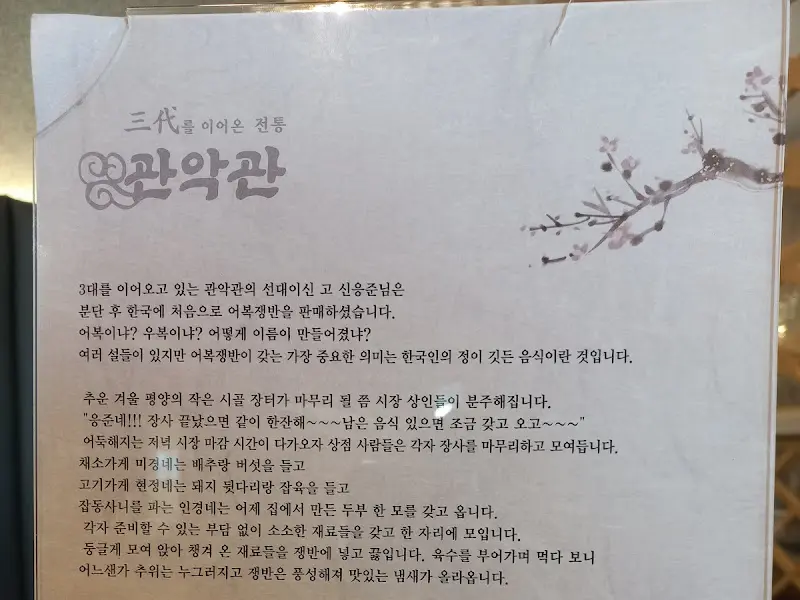 三代를 이어온 전통
관악관
3대를 이어오고 있는 관악관의 선대이신 고 신응준님은
분단 후 한국에 처음으로 어복쟁반을 판매하셨습니다.
어복이냐? 우복이냐? 어떻게 이름이 만들어졌냐?
여러 설들이 있지만 어복쟁반이 갖는 가장 중요한 의미는 한국인의 정이 깃든 음식이란 것입니다.
추운 겨울 평양의 작은 시골 장터가 마무리 될 쯤 시장 상인들이 분주해집니다.
"응준네!!! 장사 끝났으면 같이 한잔해~~~남은 음식 있으면 조금 갖고 오고~~~"
어둑해지는 저녁 시장 마감 시간이 다가오자 상점 사람들은 각자 장사를 마무리하고 모여듭니다.
채소가게 미경네는 배추랑 버섯을 들고
고기가게 현정네는 돼지 뒷다리랑 잡육을 들고
잡동사니를 파는 인경네는 어제 집에서 만든 두부 한 모를 갖고 옵니다.
각자 준비할 수 있는 부담 없이 소소한 재료들을 갖고 한 자리에 모입니다.
둥글게 모여 앉아 챙겨 온 재료들을 쟁반에 넣고 끓입니다. 육수를 부어가며 먹다 보니
어느샌가 추위는 누그러지고 쟁반은 풍성해져 맛있는 냄새가 올라옵니다.